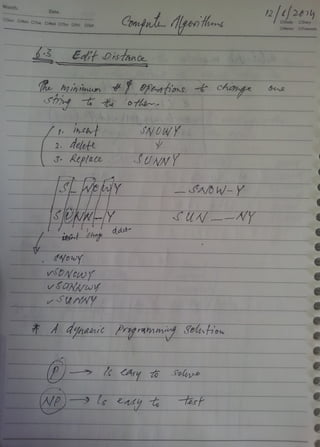 Computer Algorithms
12/6/2014
6.3 Edit Distance
The minimum # of operations to change one
string to the other.
1. insert SNOWY
2. delete ↓
3. Replace SUNNY
S _ N O W Y _ S N O W - Y
S U N N _ Y S U N _ _ N Y
insert change delete
SNOWY
✓ SUNOWY
✓ SUNNWY
✓ SUNNY
* A dynamic programming solution
P → Is easy to solve
NP → Is easy to test